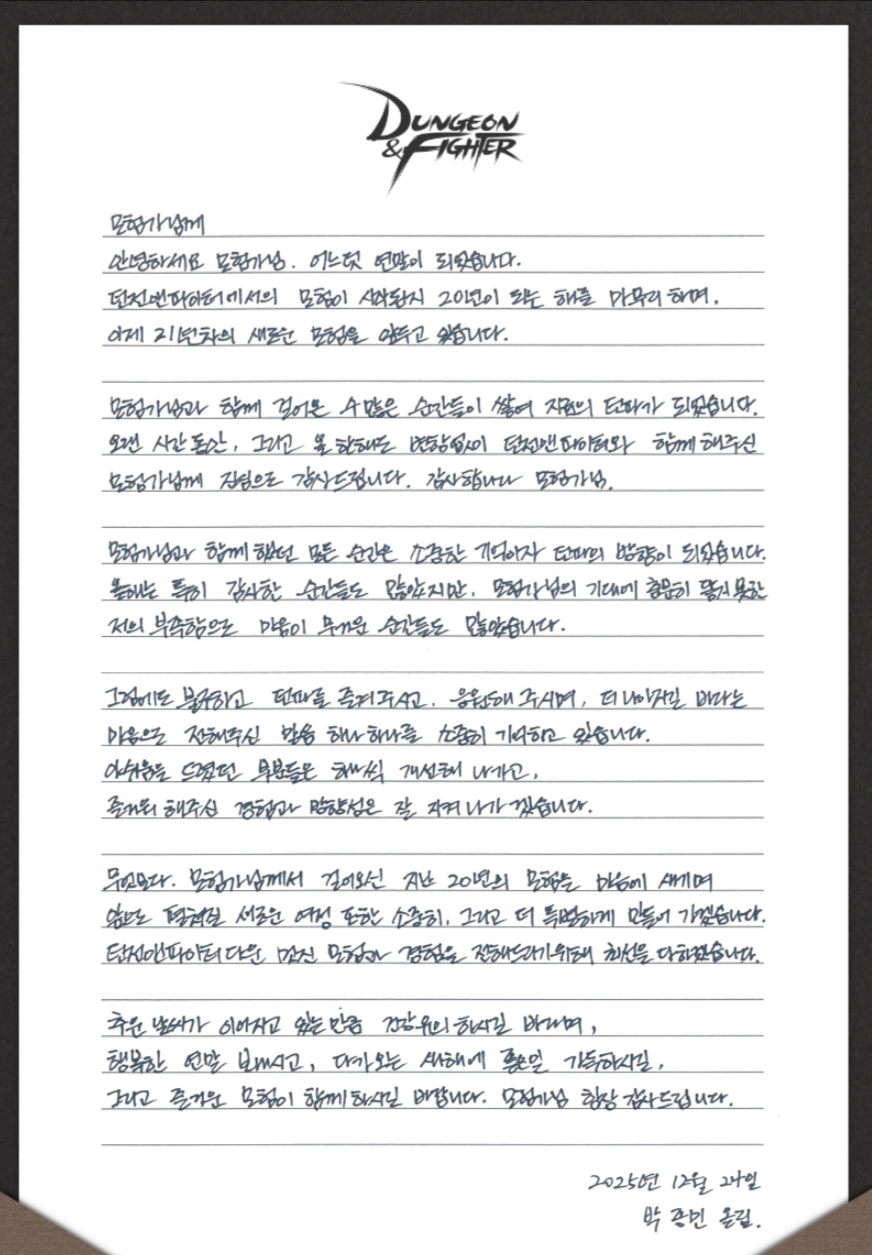 DUNGEON
& FIGHTER
모험가님께
안녕하세요 모험가님. 어느덧 연말이 되었습니다.
던전앤파이터에서의 모험이 시작된지 20년이 되는 해를 마무리하며,
어제 21년차의 새로운 모험을 앞두고 있습니다.
모험가님과 함께 걸어온 수많은 순간들이 쌓여 지금의 던파가 되었습니다.
오랜 시간동안, 그리고 올 한해도 변함없이 던전앤파이터와 함께 해주신
모험가님께 진심으로 감사드립니다. 감사합니다 모험가님.
모험가님과 함께 했던 모든 순간은 소중한 기억이자 던파의 방향이 되었습니다.
올해는 특히 감사한 순간들도 많았지만, 모험가님의 기대에 충분히 닿지 못한
저의 부족함으로 마음이 무거운 순간들도 많았습니다.
그럼에도 불구하고 던파를 즐겨주시고, 응원해 주시며, 더 나아지길 바라는
마음으로 전해주신 말씀 하나하나를 소중히 기억하고 있습니다.
아쉬움을 드렸던 부분들은 하나씩 개선해 나가고,
즐거워 해주신 경험과 방향성은 잘 지켜나가겠습니다.
무엇보다, 모험가님께서 걸어오신 지난 20년의 모험을 마음에 새기며
앞으로 펼쳐질 새로운 여정 또한 소중히, 그리고 더 특별하게 만들어 가겠습니다.
던전앤파이터다운 멋진 모험과 경험을 전해드리기위해 최선을 다하겠습니다.
추운 날씨가 이어지고 있는 만큼 건강유의하시길 바라며,
행복한 연말 보내시고, 다가오는 새해에 좋은일 가득하시길,
그리고 즐거운 모험이 함께하시길 바랍니다. 모험가님 항상 감사드립니다.
2025년 12월 24일
박 종민 올림.